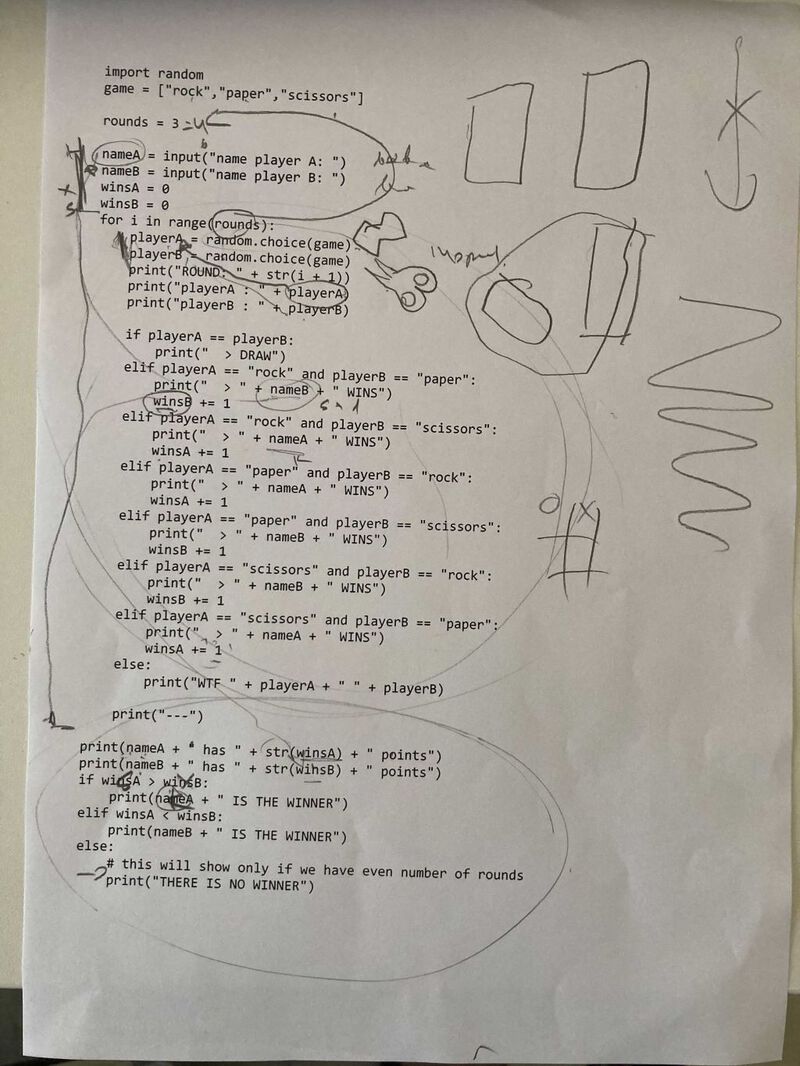 import random
game = ["rock","paper","scissors"]
rounds = 3
nameA = input("name player A: ")
nameB = input("name player B: ")
winsA = 0
winsB = 0
for i in range(rounds):
playerA = random.choice(game)
playerB = random.choice(game)
print("ROUND: " + str(i + 1))
print("playerA : " + playerA)
print("playerB : " + playerB)
if playerA == playerB:
print("  > DRAW")
elif playerA == "rock" and playerB == "paper":
print("  > " + nameB + " WINS")
winsB += 1
elif playerA == "rock" and playerB == "scissors":
print("  > " + nameA + " WINS")
winsA += 1
elif playerA == "paper" and playerB == "rock":
print("  > " + nameA + " WINS")
winsA += 1
elif playerA == "paper" and playerB == "scissors":
print("  > " + nameB + " WINS")
winsB += 1
elif playerA == "scissors" and playerB == "rock":
print("  > " + nameB + " WINS")
winsB += 1
elif playerA == "scissors" and playerB == "paper":
print("  > " + nameA + " WINS")
winsA += 1
else:
print("WTF " + playerA + " " + playerB)
print("---")
print(nameA + " has " + str(winsA) + " points")
print(nameB + " has " + str(winsB) + " points")
if winsA > winsB:
print(nameA + " IS THE WINNER")
elif winsA < winsB:
print(nameB + " IS THE WINNER")
else:
# this will show only if we have even number of rounds
print("THERE IS NO WINNER")